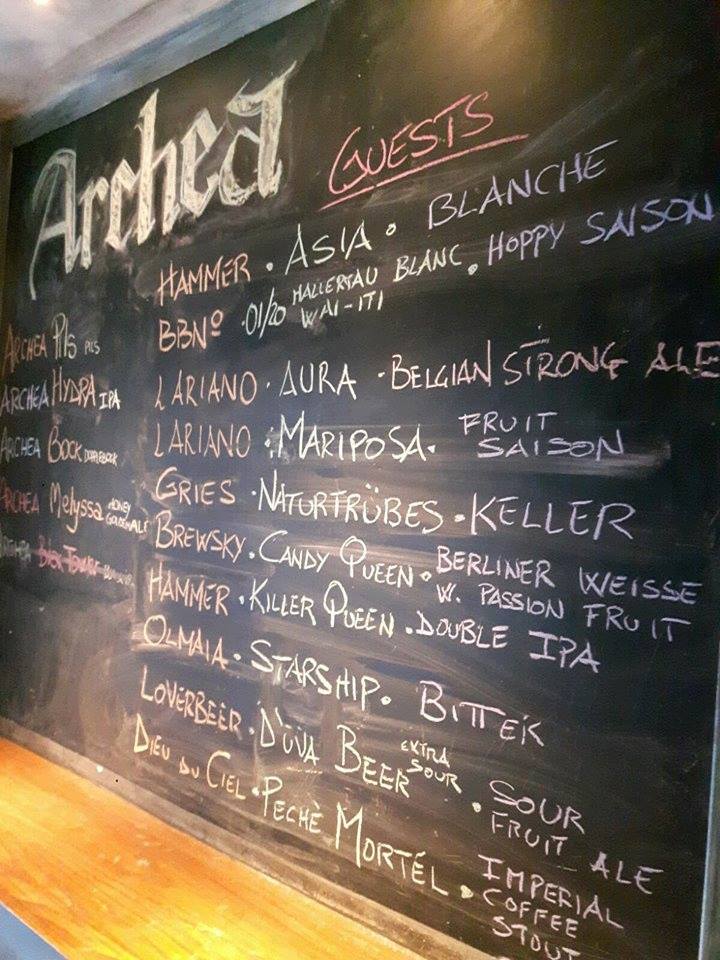 Archea
GUESTS
ARCHEA Pils PILS
ARCHEA HYDRA IPA
ARCHEA BOCK DOPPELBOCK
ARCHEA Melyssa HONEY GOLDEN ALE
ARCHEA
HAMMER · ASIA · BLANCHE
BBNº · 01/20 HALLERTAU BLANC WAI-ITI · HOPPY SAISON
LARIANO · AURA · BELGIAN STRONG ALE
LARIANO · MARIPOSA · FRUIT SAISON
GRIES · NATURTRÜBES · KELLER
BREWSKY · CANDY QUEEN · BERLINER WEISSE
W. PASSION FRUIT
HAMMER · KILLER QUEEN · DOUBLE IPA
OLMAIA · STARSHIP · BITTER
LOVERBEER · D'UVA BEER EXTRA SOUR · SOUR
FRUIT ALE
DIEU DU CIEL · PECHÈ MORTÉL · IMPERIAL
COFFEE
STOUT